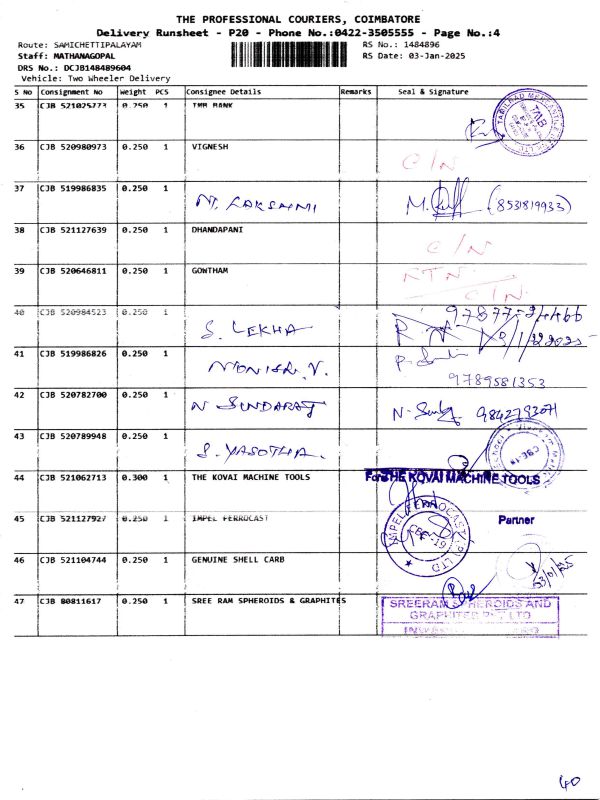 THE PROFESSIONAL COURIERS, COIMBATORE
Delivery Runsheet - P20 - Phone No.:0422-3505555 - Page No.:4
Route: SAMICHETTIPALAYAM RS No.: 1484896
Staff: MATHANAGOPAL RS Date: 03-Jan-2025
DRS No.: DCJB148489604
Vehicle: Two Wheeler Delivery
S No Consignment No Weight PCS Consignee Details Remarks Seal & Signature
35 CJB 521025773 0.250 1 TMB BANK
36 CJB 520980973 0.250 1 VIGNESH C/N
37 CJB 519986835 0.250 1 M. LAKSHMI (8531819933)
38 CJB 521127639 0.250 1 DHANDAPANI C/N
39 CJB 520646811 0.250 1 GOWTHAM NTN C/N
40 CJB 520984523 0.250 1 S. LEKHA
41 CJB 519986826 0.250 1 MONISH. V. 9789581353
42 CJB 520782700 0.250 1 N SUNDARAJ 9842793071
43 CJB 520789948 0.250 1 S. YASOTHA.
44 CJB 521062713 0.300 1 THE KOVAI MACHINE TOOLS For THE KOVAI MACHINE TOOLS
Partner
45 CJB 521127927 0.250 1 IMPEL FERROCAST
46 CJB 521104744 0.250 1 GENUINE SHELL CARB
47 CJB 80811617 0.250 1 SREE RAM SPHEROIDS & GRAPHITES SREERAM SPHEROIDS AND
GRAPHITES PVT LTD
40